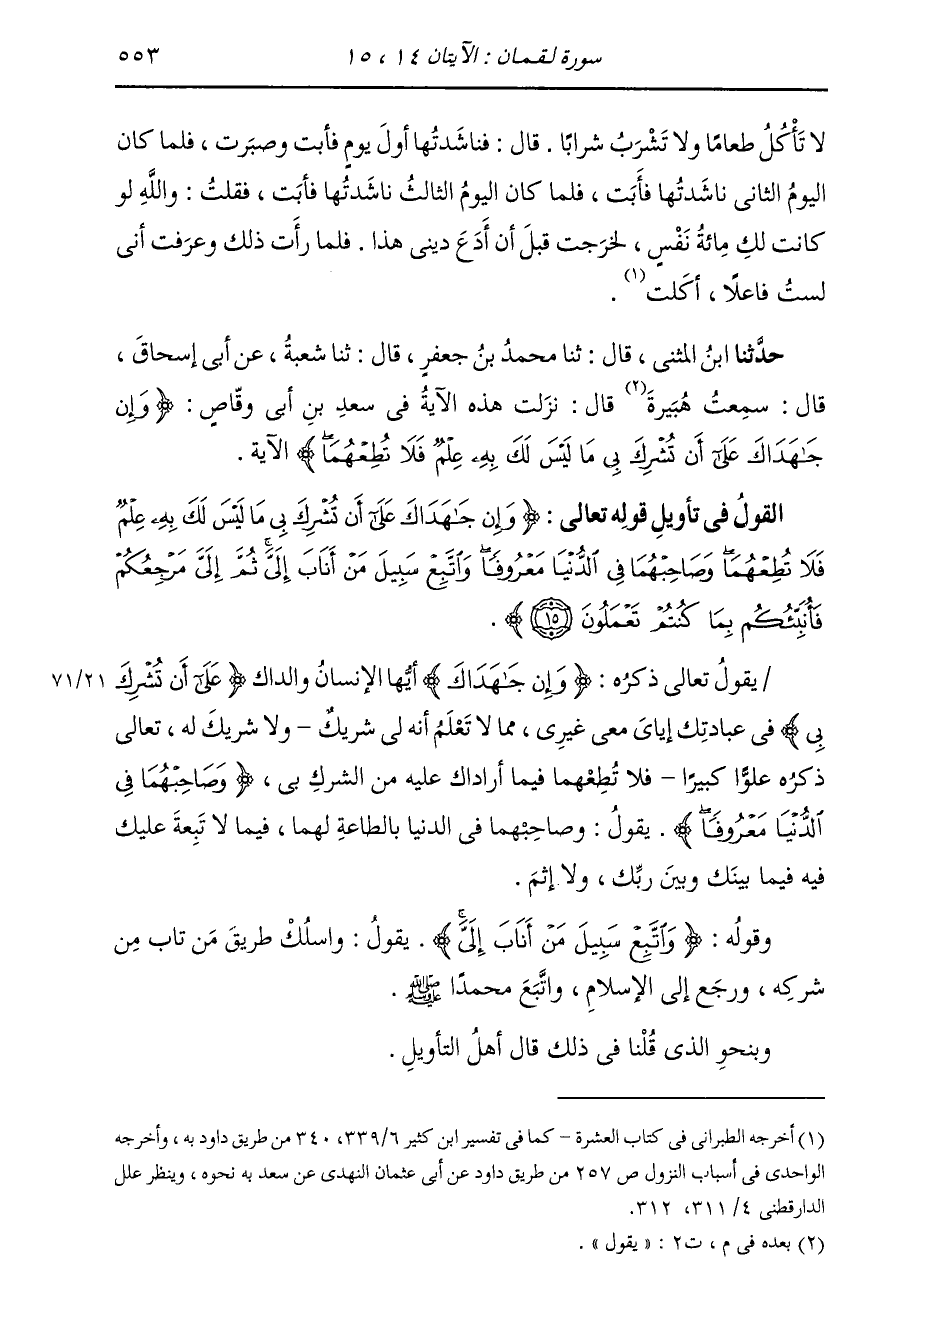 سورة لقمان : الآيتان ١٤ ، ١٥ ٥٥٣
لا تَأْكُلُ طعامًا ولا تَشْرَبُ شرابًا . قال : فناشَدتُها أولَ يومٍ فأبت وصبَرت ، فلما كان
اليومُ الثانى ناشَدتُها فأَبَت ، فلما كان اليومُ الثالثُ ناشَدتُها فأبَت ، فقلتُ : واللَّهِ لو
كانت لكِ مِائةُ نَفْسٍ ، لخرَجت قبلَ أن أَدَعَ دينى هذا . فلما رأَت ذلك وعرَفت أنى
لستُ فاعلًا ، أكَلت(١) .
حدَّثنا ابنُ المثنى ، قال : ثنا محمدُ بنُ جعفرٍ ، قال : ثنا شعبةُ ، عن أبى إسحاقَ ،
قال : سمِعتُ هُبَيرةَ(٢) قال : نزَلت هذه الآيةُ فى سعدِ بنِ أبى وقّاصٍ : ﴿ وَإِن
جَٰهَدَاكَ عَلَىٰٓ أَن تُشْرِكَ بِى مَا لَيْسَ لَكَ بِهِۦ عِلْمٌ فَلَا تُطِعْهُمَاۖ ﴾ الآية .
القولُ فى تأويلِ قولِه تعالى : ﴿ وَإِن جَٰهَدَاكَ عَلَىٰٓ أَن تُشْرِكَ بِى مَا لَيْسَ لَكَ بِهِۦ عِلْمٌ
فَلَا تُطِعْهُمَاۖ وَصَاحِبْهُمَا فِى ٱلدُّنْيَا مَعْرُوفًاۖ وَٱتَّبِعْ سَبِيلَ مَنْ أَنَابَ إِلَىَّۚ ثُمَّ إِلَىَّ مَرْجِعُكُمْ
فَأُنَبِّئُكُم بِمَا كُنتُمْ تَعْمَلُونَ ١٥ ﴾ .
/ يقولُ تعالى ذكرُه : ﴿ وَإِن جَٰهَدَاكَ ﴾ أيُّها الإنسانُ والداك ﴿ عَلَىٰٓ أَن تُشْرِكَ ٧١/٢١
بِى ﴾ فى عبادتِك إياىَ معى غيرِى ، مما لا تَعْلَمُ أنه لى شريكٌ – ولا شريكَ له ، تعالى
ذكرُه علوًّا كبيرًا – فلا تُطِعْهما فيما أراداك عليه من الشركِ بى ، ﴿ وَصَاحِبْهُمَا فِى
ٱلدُّنْيَا مَعْرُوفًاۖ ﴾ . يقولُ : وصاحِبْهما فى الدنيا بالطاعةِ لهما ، فيما لا تَبِعةَ عليك
فيه فيما بينَك وبينَ ربِّك ، ولا إثمَ .
وقولُه : ﴿ وَٱتَّبِعْ سَبِيلَ مَنْ أَنَابَ إِلَىَّۚ ﴾ . يقولُ : واسلُكْ طريقَ مَن تاب مِن
شركِه ، ورجَع إلى الإسلامِ ، واتَّبَعَ محمدًا ﷺ .
وبنحوِ الذى قُلْنا فى ذلك قال أهلُ التأويلِ .
(١) أخرجه الطبرانى فى كتاب العشرة – كما فى تفسير ابن كثير ٣٣٩/٦، ٣٤٠ من طريق داود به ، وأخرجه
الواحدى فى أسباب النزول ص ٢٥٧ من طريق داود عن أبى عثمان النهدى عن سعد به نحوه ، وينظر علل
الدارقطنى ٤/ ٣١١، ٣١٢.
(٢) بعده فى م ، ت٢ : « يقول » .